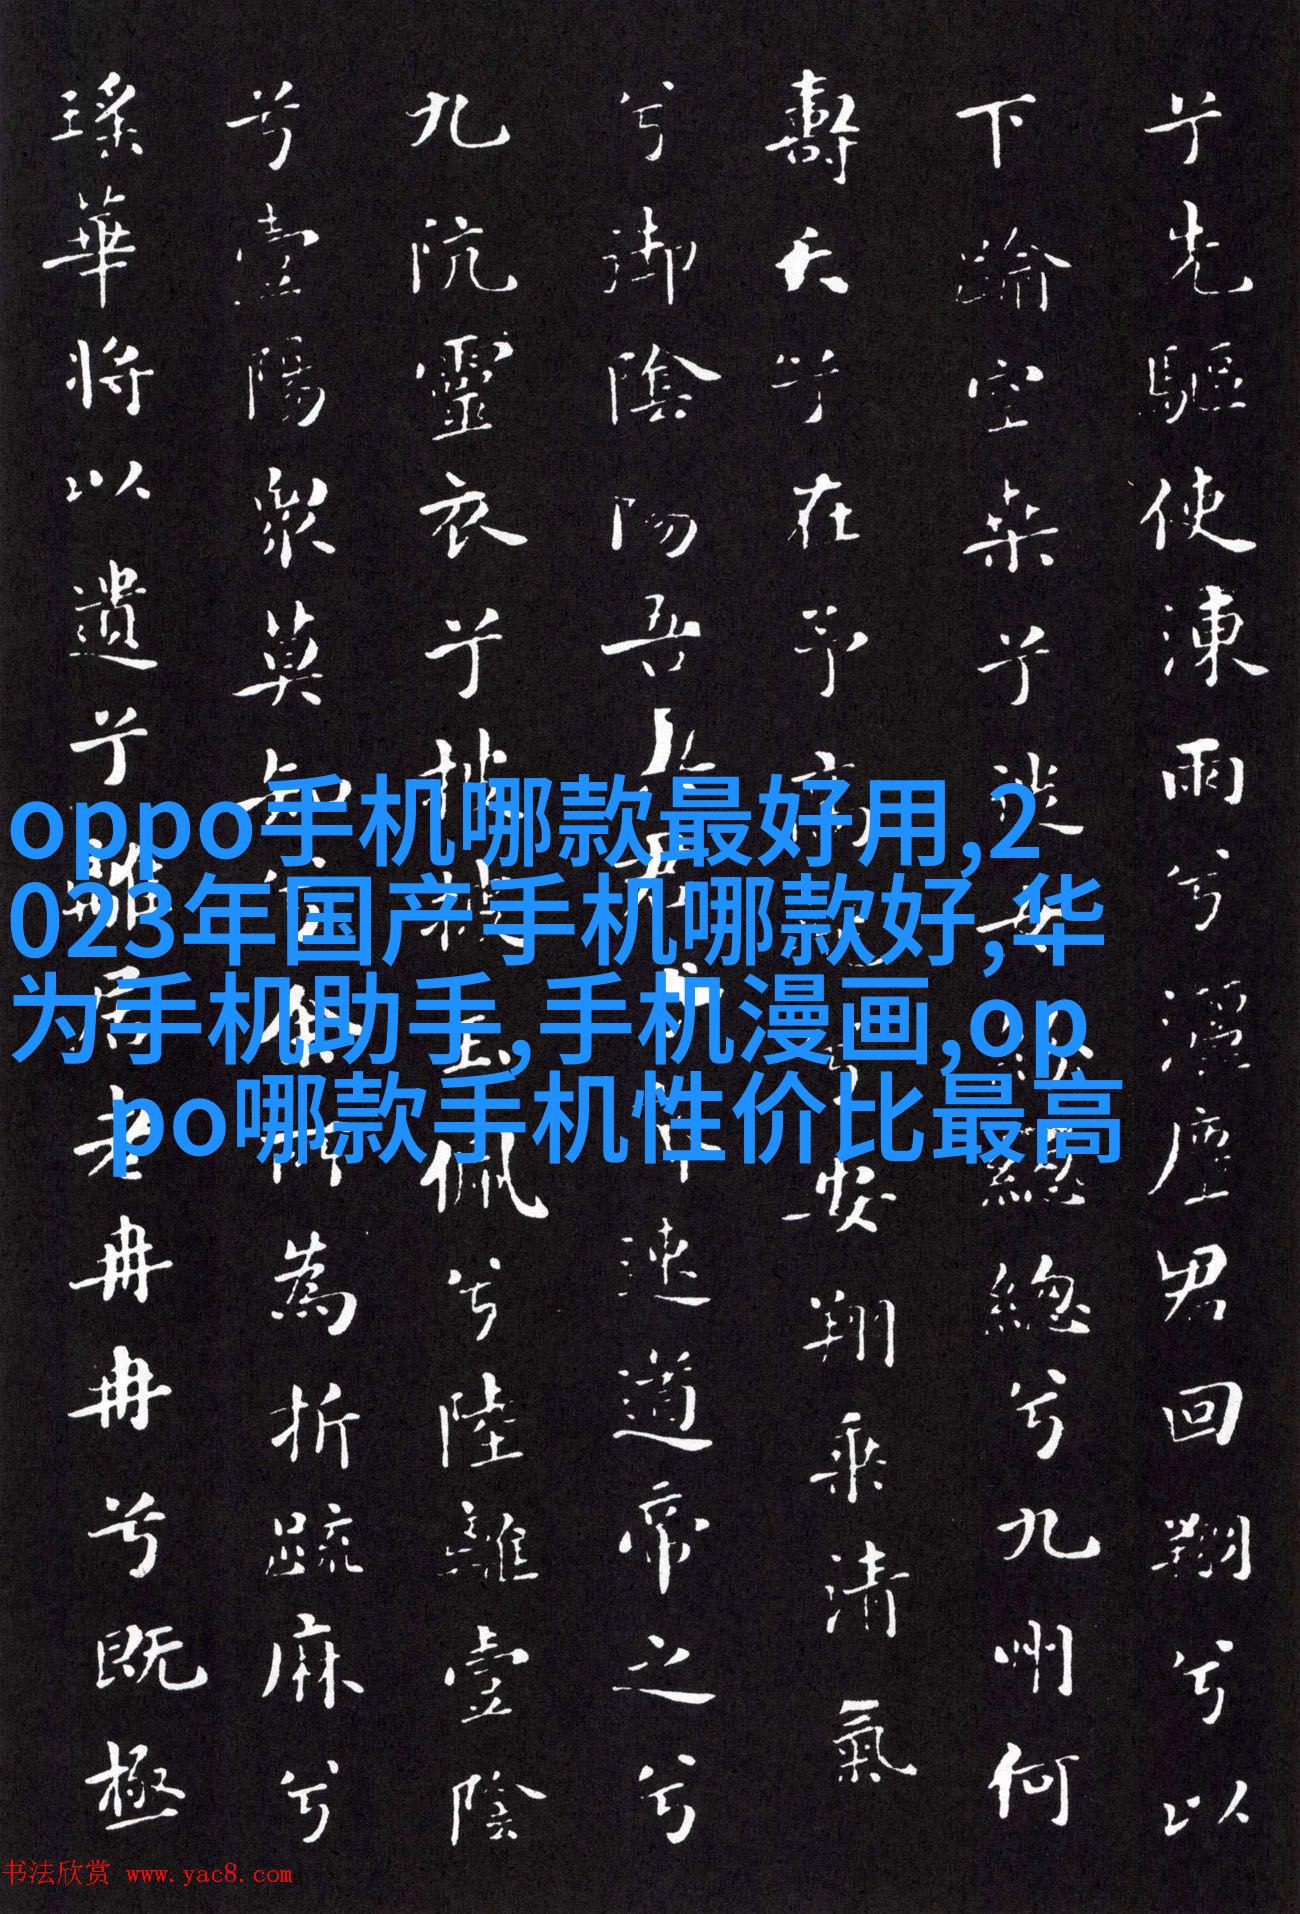 兮先驅使涷雨兮灑塵君回翔兮以
下踰空桑兮從女總總兮九州何
壽夭兮在予高安翔乘清氣
兮御陰陽吾君速道帝之兮
九阬靈衣兮披玉佩兮陸離壹陰
兮壹陽眾莫知余所為折疏麻兮
瑤華將以遺兮離居老冉冉兮既極
oppo手机哪款最好用,2
023年国产手机哪款好,华
为手机助手,手机漫画,op
po哪款手机性价比最高
书法欣赏 www.yac8.com